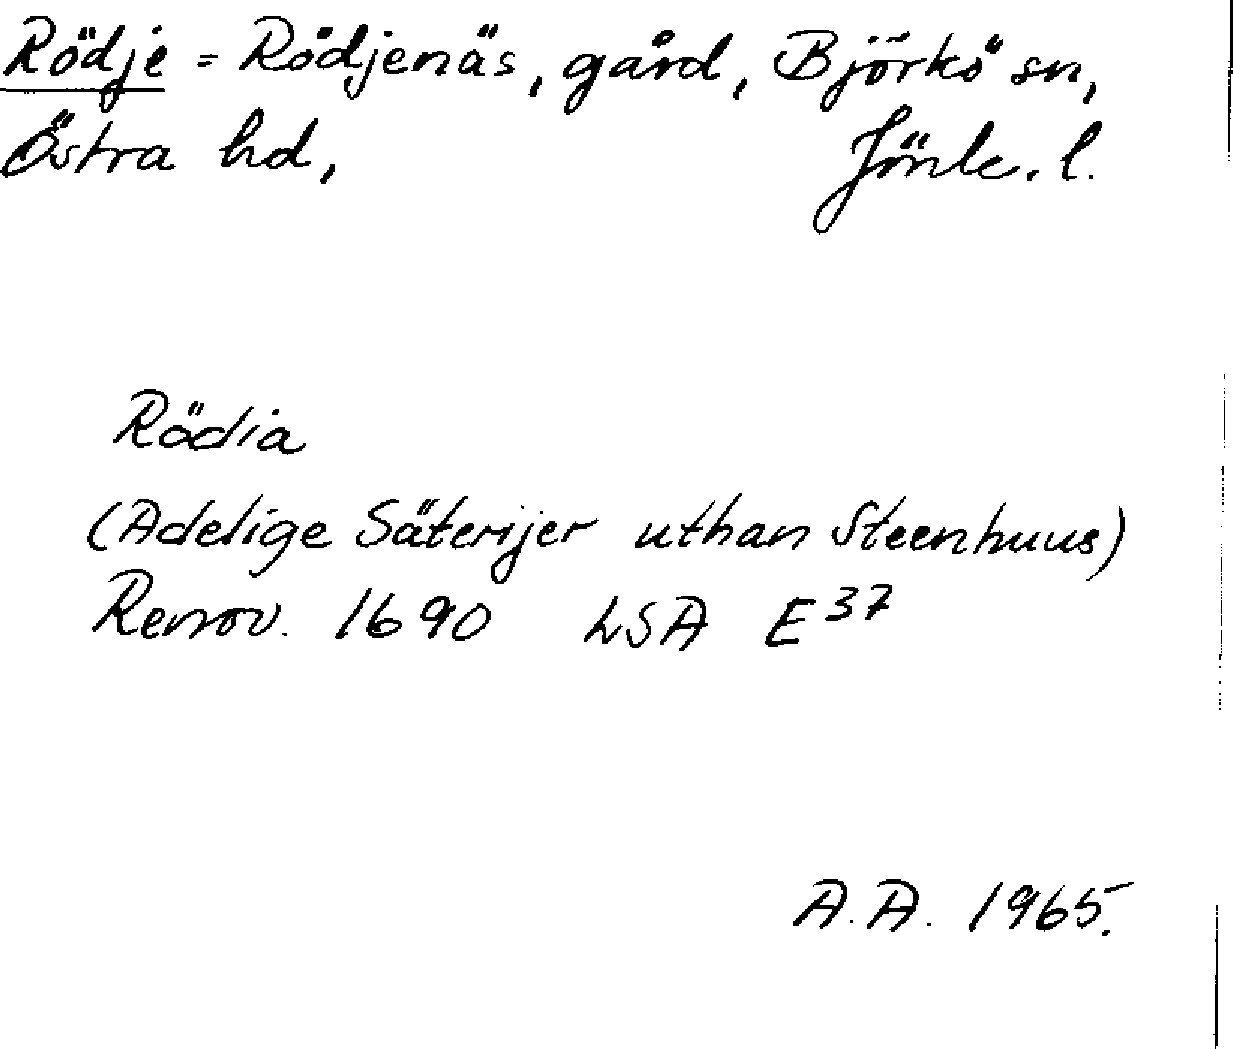 Rödje = Rödjenäs, gård, Björkö sn,
Östra hd, Jönk. l.
Rödia
(Adelige Säterijer uthan Steenhuus)
Renov. 1690 LSA E37
A.A. 1965.